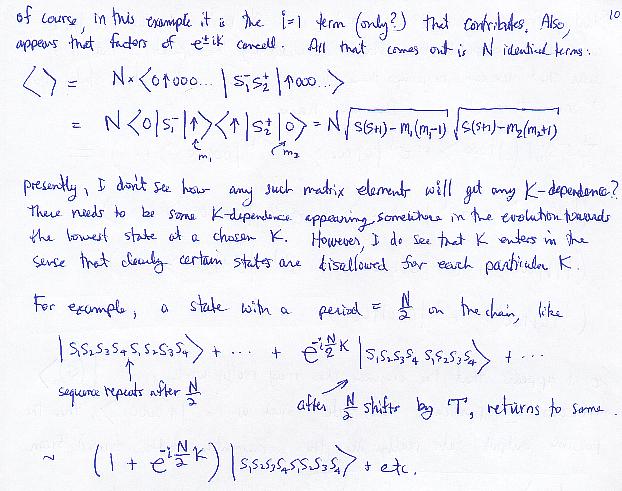 10
of course, in this example it is the i=1 term (only?) that contributes. Also,
appears that factors of e^{±iK} cancel. All that comes out is N identical terms:
⟨ ⟩ = N×⟨0↑000...|S₁⁻S₂⁺|↑000...⟩
= N⟨0|S₁⁻|↑⟩⟨↑|S₂⁺|0⟩ = N√(S(S+1)-m₁(m₁-1)) √(S(S+1)-m₂(m₂+1))
m₁ m₂
presently, I don't see how any such matrix elements will get any K-dependence?
There needs to be some K-dependence appearing somewhere in the evolution towards
the lowest state at a chosen K. However, I do see that K enters in the
sense that clearly certain states are disallowed for each particular K.
For example, a state with a period = N/2 on the chain, like
|S₁S₂S₃S₄S₁S₂S₃S₄⟩ + ... + e^{-i(N/2)K}|S₁S₂S₃S₄ S₁S₂S₃S₄⟩ + ...
sequence repeats after N/2
after N/2 shifts by T, returns to same.
~ (1 + e^{-i(N/2)K})|S₁S₂S₃S₄S₁S₂S₃S₄⟩ + etc.